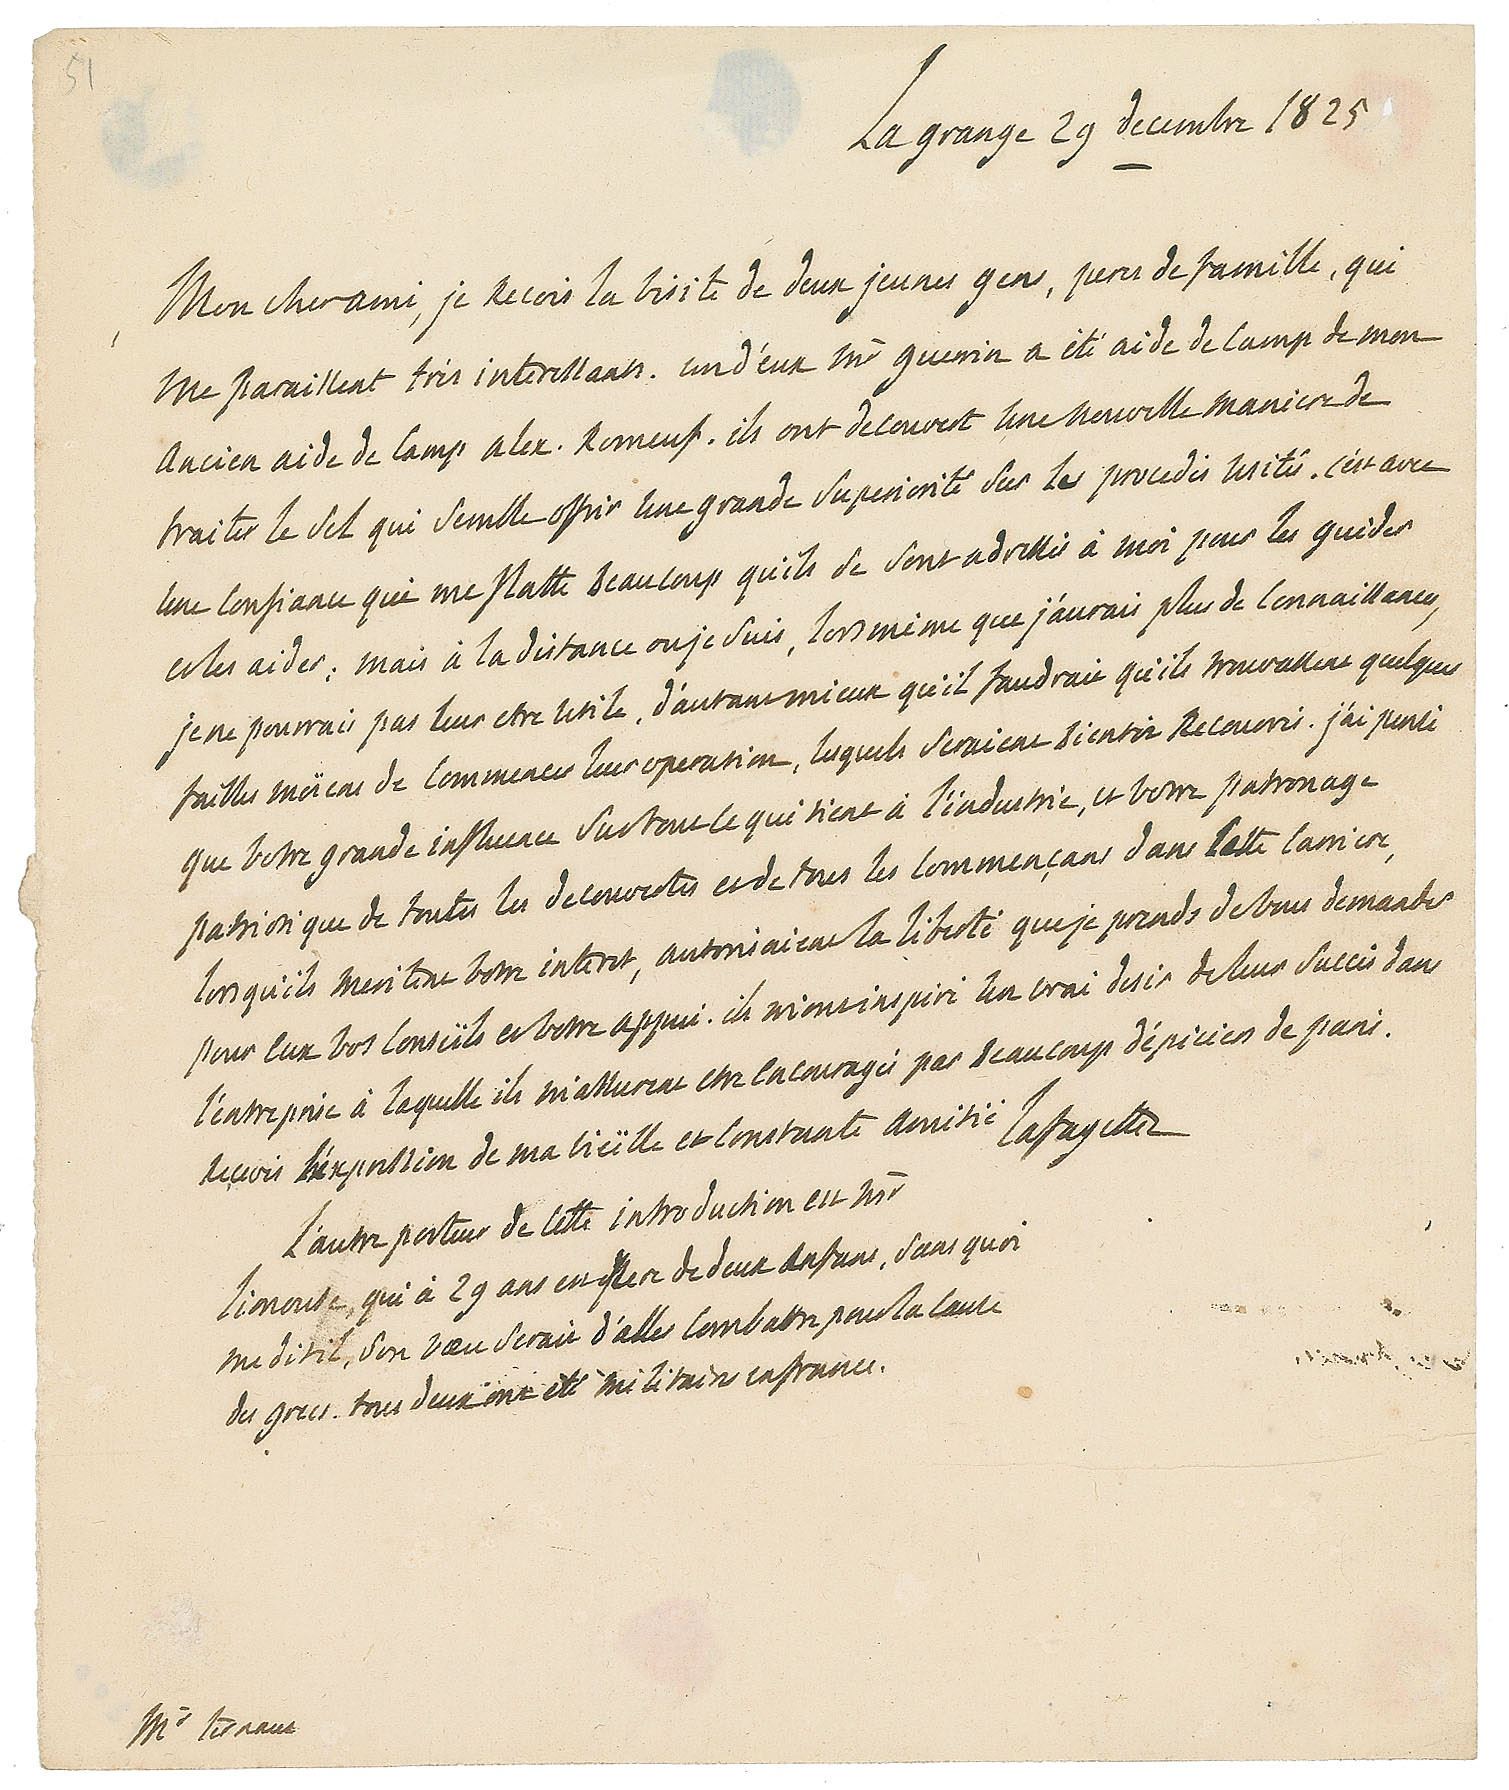 51
La grange 29 decembre 1825
Mon cher ami, je recois la visite de deux jeunes gens, peres de famille, qui
me paraissent très interessants. un d'eux Mr guerin a été aide de camp de mon
ancien aide de camp alex. Romeuf. ils ont decouvert une nouvelle maniere de
traiter le sel qui semble offrir une grande superiorité sur les procedés usités. c'est avec
une confiance qui me flatte beaucoup qu'ils se sont adressés à moi pour les guider
et les aider; mais à la distance ou je suis, lors même que j'aurais plus de connaissances,
je ne pourrais pas leur etre utile, d'autant mieux qu'il faudrait qu'ils trouvassent quelques
faibles moïens de commencer leur operation, lesquels seraient bientôt recouvrés. j'ai pensé
que votre grande influence sur tout ce qui tient à l'industrie, et votre patronage
patriotique de toutes les decouvertes et de tous les commençans dans cette carriere,
lorsqu'ils meritent votre interet, autorisaient la liberté que je prends de vous demander
pour eux vos conseils et votre appui. ils m'ont inspiré un vrai desir de leur succès dans
l'entreprise à laquelle ils m'assurent etre encouragés par beaucoup d'épiciers de paris.
recevés l'expression de ma vieille et constante amitié Lafayette
L'autre porteur de cette introduction est Mr
qui à 29 ans est pere de deux enfans, sans quoi
me dit il, son vœu serait d'aller combattre pour la cause
des grecs. tous deux ont été militaires en france.
Mr ternaux